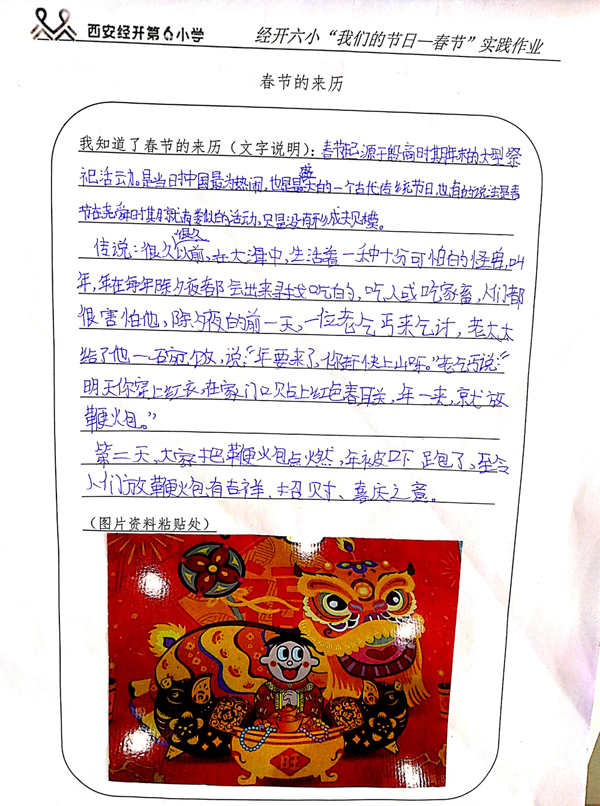 西安经开第6小学
经开六小“我们的节日—春节”实践作业
春节的来历
我知道了春节的来历（文字说明）：春节起源于殷商时期年末的大型祭
祀活动。是当时中国最为热闹，也是最盛大的一个古代传统节日，也有的说法是春
节在尧舜时期就有类似的活动，只是没有形成规模。
传说：很久很久以前，在大海中，生活着一种十分可怕的怪兽，叫
年，年在每年除夕夜都会出来寻找吃的，吃人或吃家畜，人们都
很害怕他，除夕夜的前一天，一位老乞丐来乞讨，老太太
给了他一碗饭，说：“年要来了，你赶快上山吧。”老乞丐说：“
明天你穿上红衣在家门口贴上红色春联，年一来，就放
鞭炮。”
第二天，大家把鞭炮点燃，年被吓跑了，至今
人们放鞭炮有吉祥、招财、喜庆之意。
（图片资料粘贴处）
旺